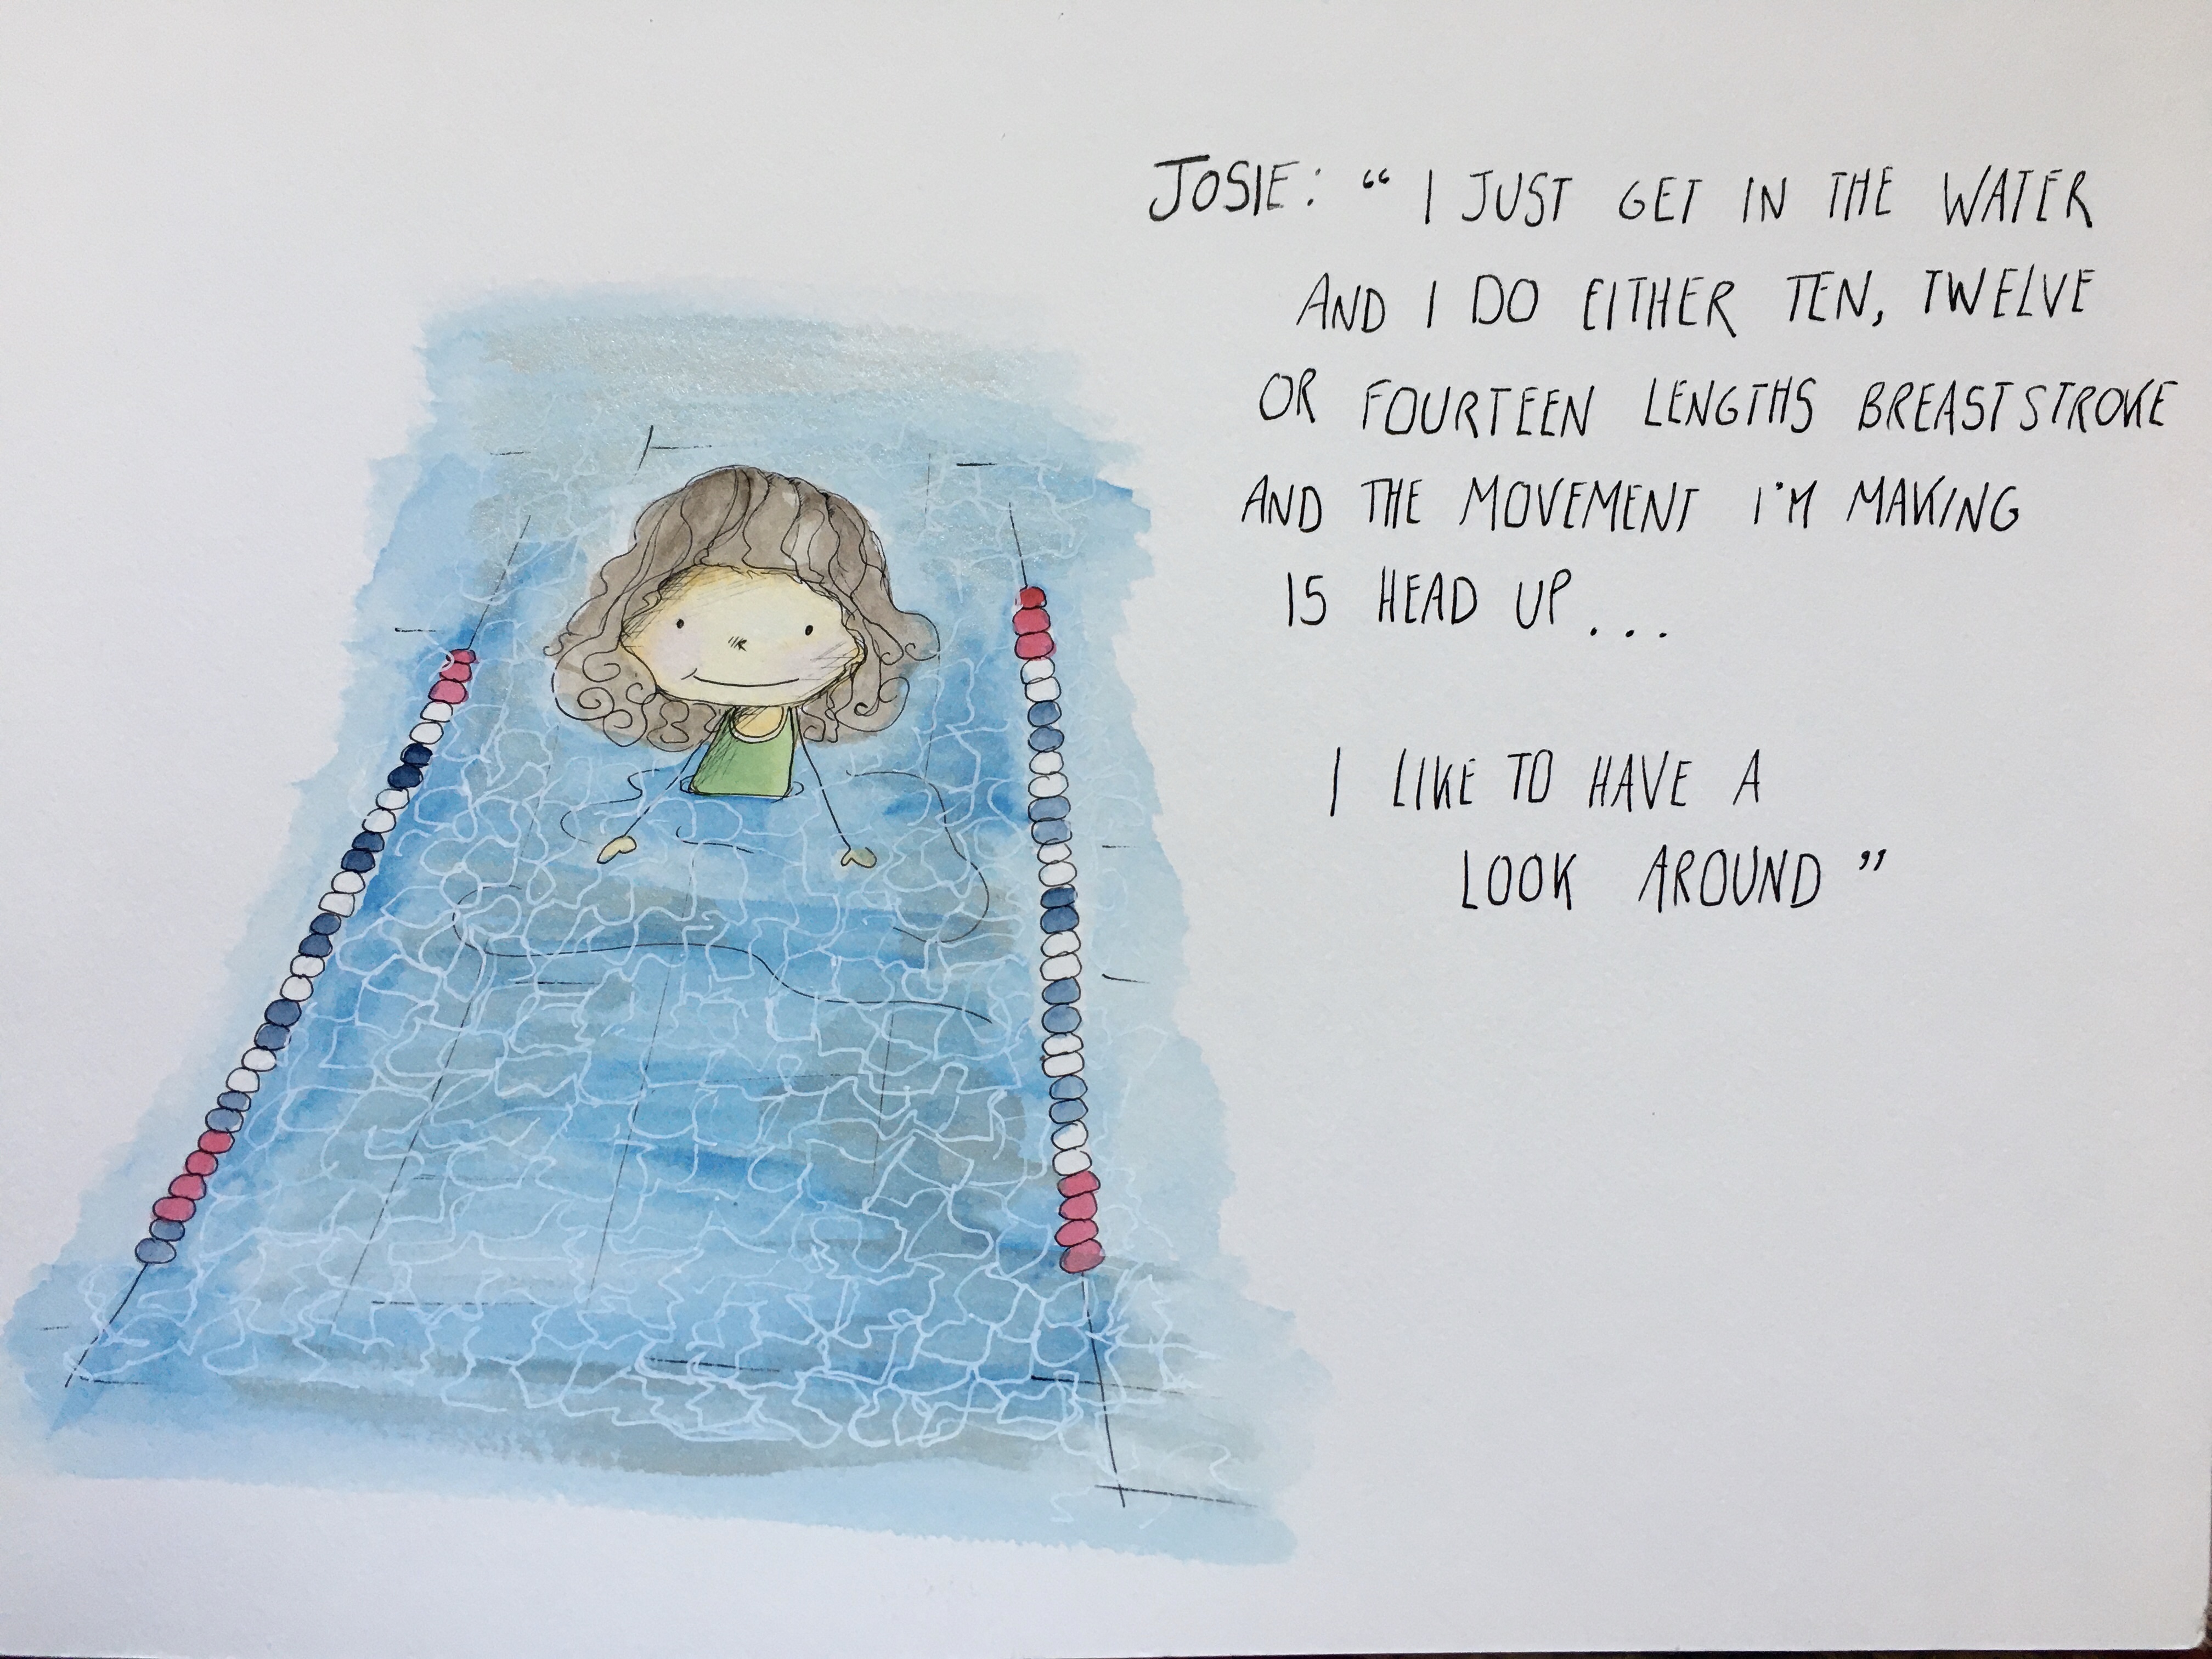 JOSIE: “ I JUST GET IN THE WATER
AND I DO EITHER TEN, TWELVE
OR FOURTEEN LENGTHS BREASTSTROKE
AND THE MOVEMENT I'M MAKING
IS HEAD UP...
I LIKE TO HAVE A
LOOK AROUND ”